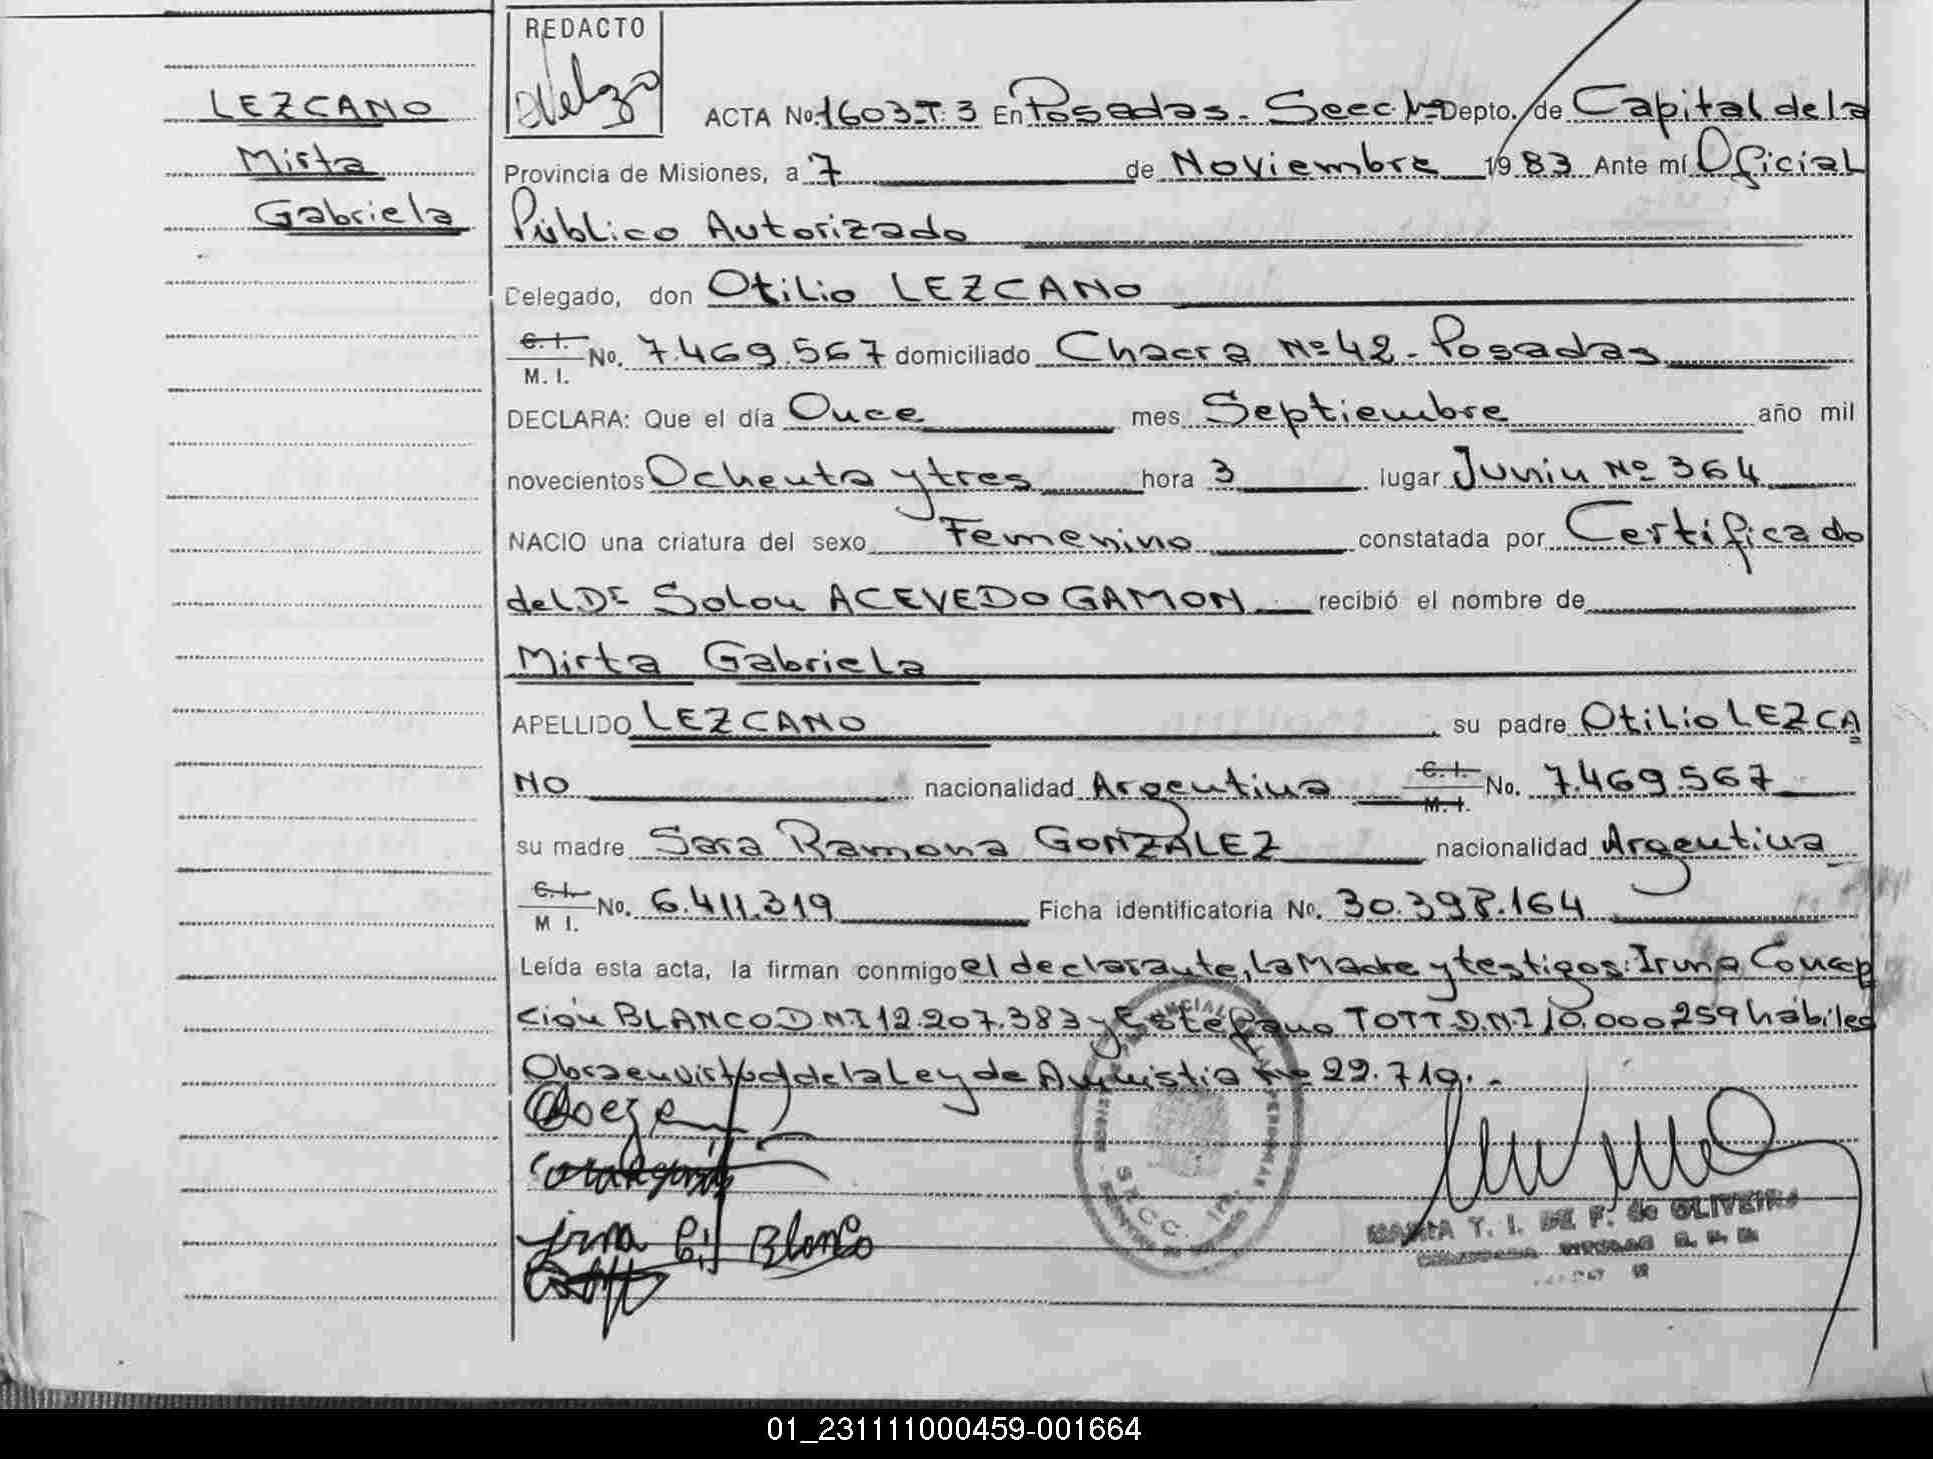 REDACTO
LEZCANO
Mirta
Gabriela
ACTA No. 1603-T. 3 En Posadas - Secc 1ª Depto. de Capital de la
Provincia de Misiones, a 7 de Noviembre 1983 Ante mí Oficial
Público Autorizado
Delegado, don Otilio LEZCANO
C. I. M. I. No. 7.469.567 domiciliado Chacra Nº 42 - Posadas
DECLARA: Que el día Once mes Septiembre año mil
novecientos Ochenta y tres hora 3 lugar Junin Nº 364
NACIO una criatura del sexo Femenino constatada por Certificado
del Dr Solon ACEVEDO GAMON recibió el nombre de
Mirta Gabriela
APELLIDO LEZCANO su padre Otilio LEZCA
NO nacionalidad Argentina C. I. M. I. No. 7.469.567
su madre Sara Ramona GONZALEZ nacionalidad Argentina
C. I. M I. No. 6.411.319 Ficha identificatoria No. 30.398.164
Leída esta acta, la firman conmigo el declarante, la Madre y testigos: Irma Concep
ción BLANCO DNI 12.207.383 y Estefano TOTT D.N.I 10.000259 habiles
Obra en virtud de la Ley de Amnistia Nº 22.719. -
Irma C. Blanco
SECC.
MARIA T. I. DE F. de OLIVEIRA
01_231111000459-001664